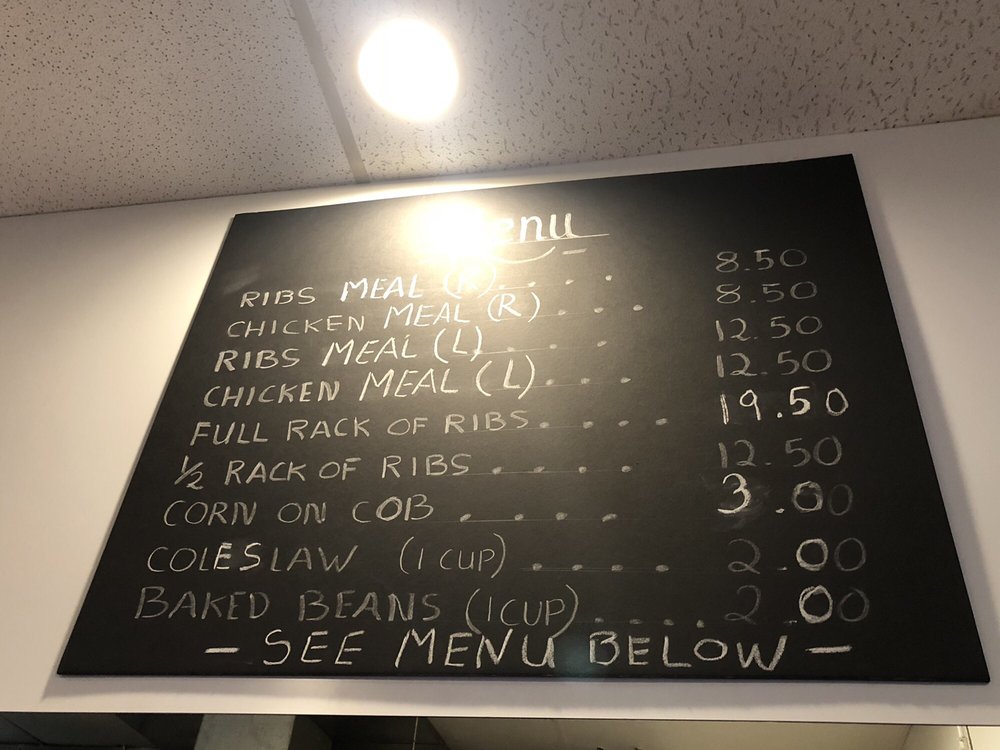 Menu
RIBS MEAL (R) . . . . 8.50
CHICKEN MEAL (R) . . . 8.50
RIBS MEAL (L) . . . 12.50
CHICKEN MEAL (L) . . . 12.50
FULL RACK OF RIBS . . . . 19.50
1/2 RACK OF RIBS . . . . 12.50
CORN ON COB . . . . 3.00
COLESLAW (1 CUP) . . . . 2.00
BAKED BEANS (1 CUP) . . . . 2.00
- SEE MENU BELOW -